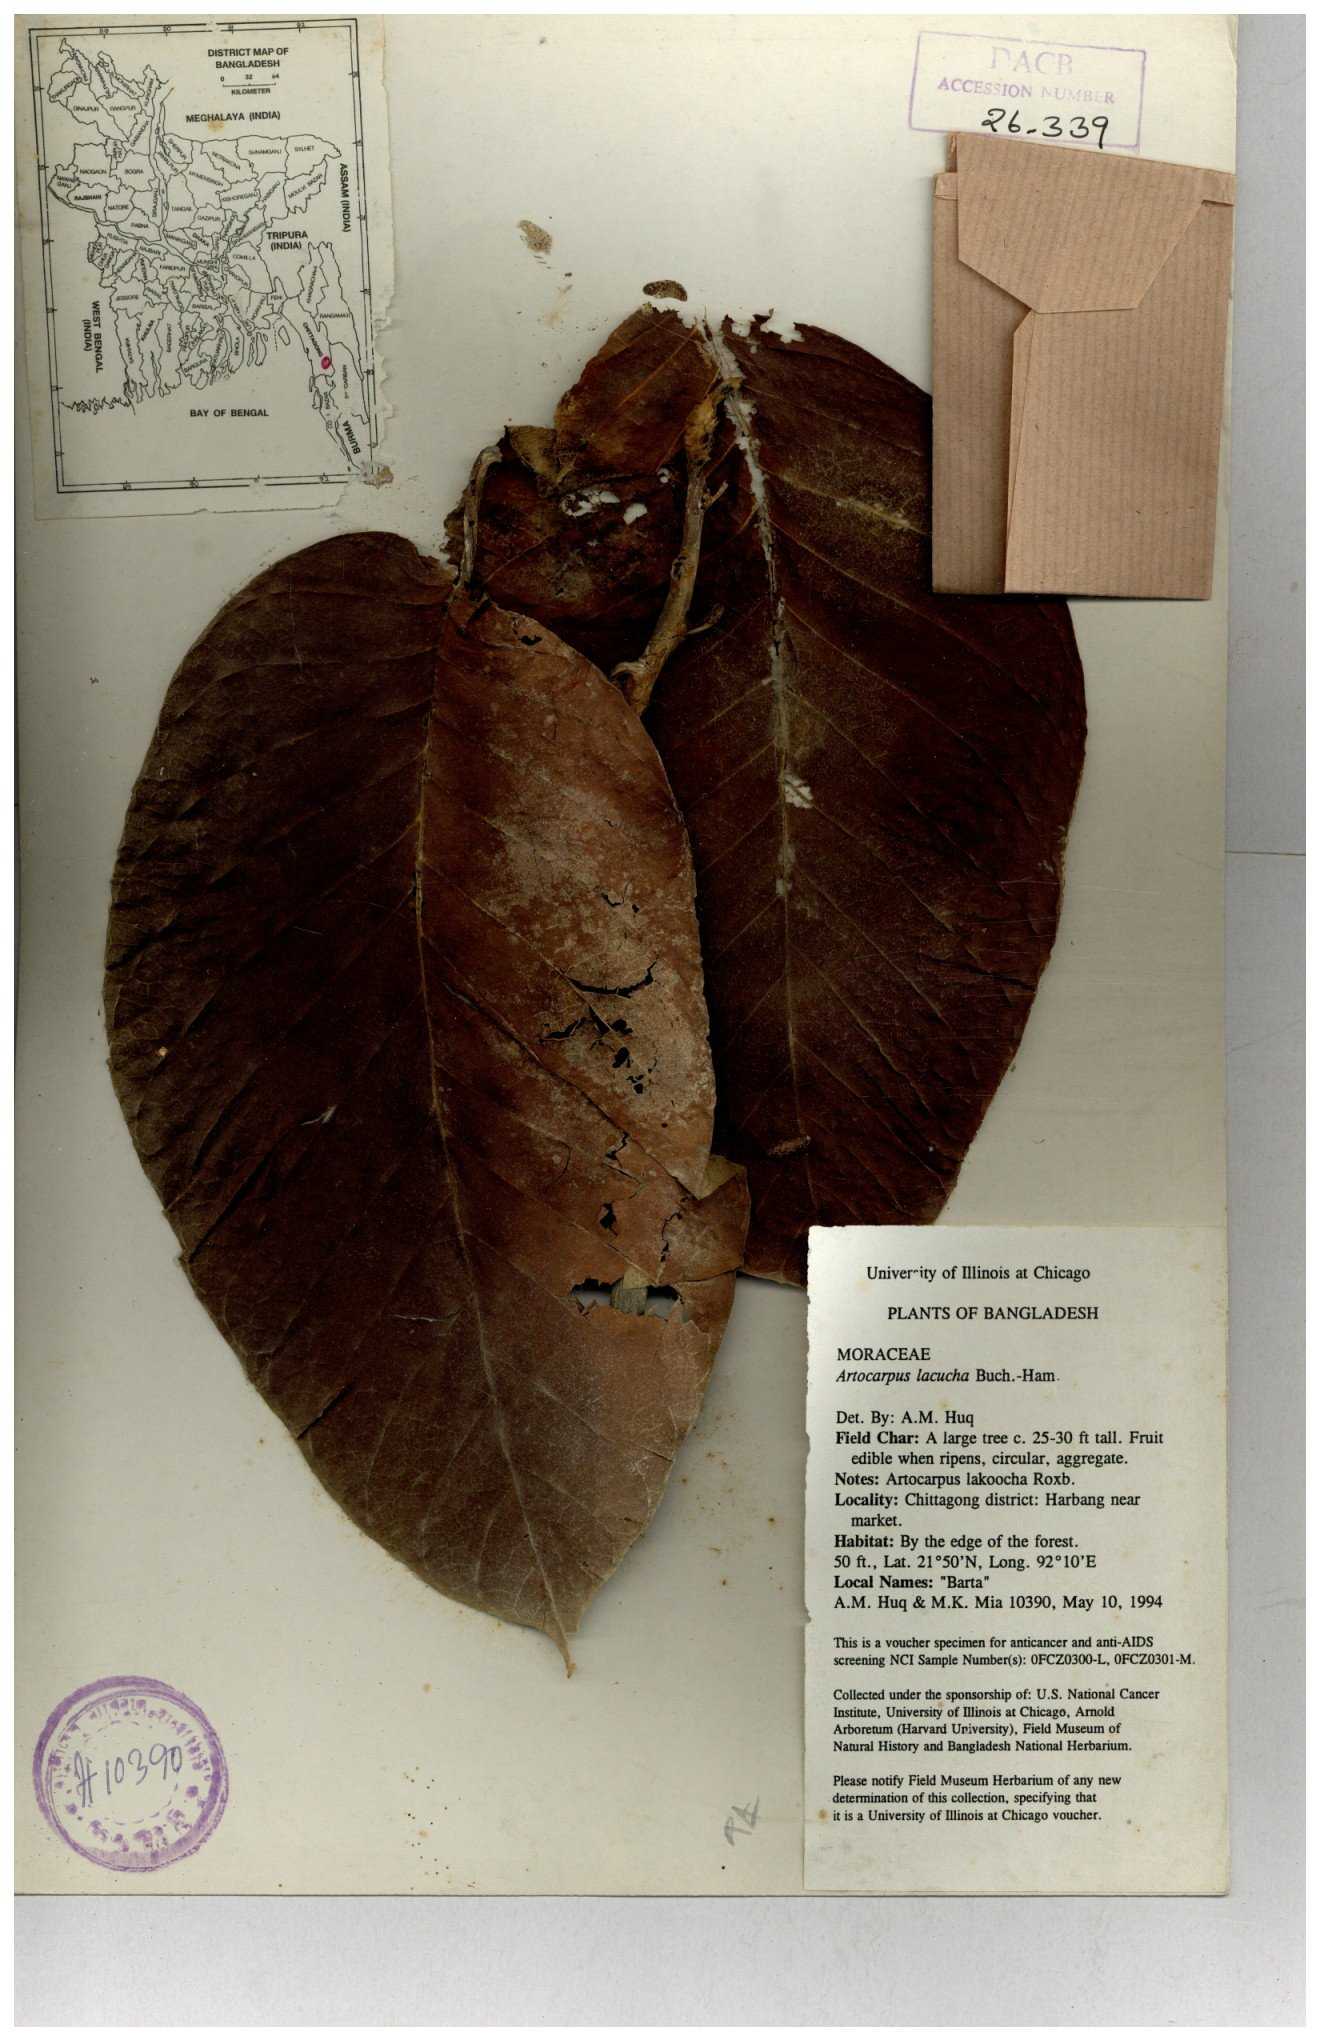 DISTRICT MAP OF
BANGLADESH
0 32 64
KILOMETER
MEGHALAYA (INDIA)
DINAJPUR
RANGPUR
SUNAMGANJ
SYLHET
NAOGAON
BOGRA
RAJSHAHI
NATORE
TANGAIL
GAZIPUR
PABNA
ASSAM (INDIA)
TRIPURA
(INDIA)
COMILLA
FARIDPUR
JESSORE
FENI
RANGAMATI
WEST BENGAL
(INDIA)
BAY OF BENGAL
BURMA
DACB
ACCESSION NUMBER
26.339
University of Illinois at Chicago
PLANTS OF BANGLADESH
MORACEAE
Artocarpus lacucha Buch.-Ham.
Det. By: A.M. Huq
Field Char: A large tree c. 25-30 ft tall. Fruit
edible when ripens, circular, aggregate.
Notes: Artocarpus lakoocha Roxb.
Locality: Chittagong district: Harbang near
market.
Habitat: By the edge of the forest.
50 ft., Lat. 21°50'N, Long. 92°10'E
Local Names: "Barta"
A.M. Huq & M.K. Mia 10390, May 10, 1994
This is a voucher specimen for anticancer and anti-AIDS
screening NCI Sample Number(s): 0FCZ0300-L, 0FCZ0301-M.
Collected under the sponsorship of: U.S. National Cancer
Institute, University of Illinois at Chicago, Arnold
Arboretum (Harvard University), Field Museum of
Natural History and Bangladesh National Herbarium.
Please notify Field Museum Herbarium of any new
determination of this collection, specifying that
it is a University of Illinois at Chicago voucher.
H 10390